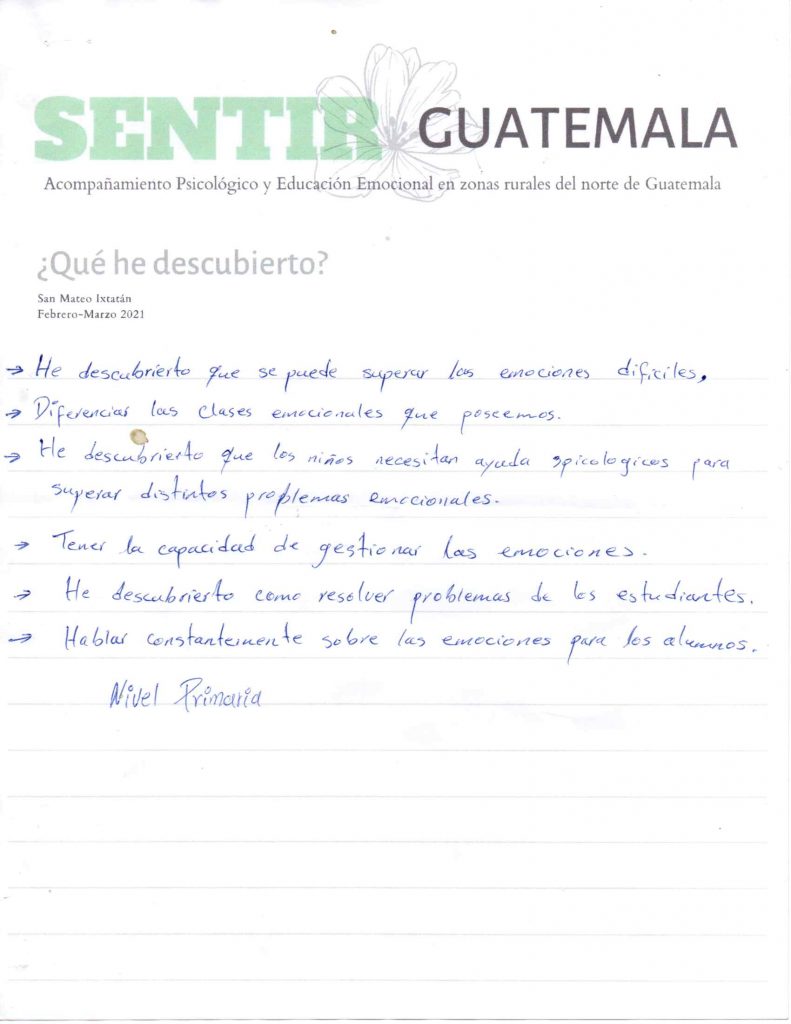 SENTIR GUATEMALA
Acompañamiento Psicológico y Educación Emocional en zonas rurales del norte de Guatemala
¿Qué he descubierto?
San Mateo Ixtatán
Febrero-Marzo 2021
→ He descubrierto que se puede superar las emociones dificiles.
→ Diferenciar las clases emocionales que poseemos.
→ He descubrierto que los niños necesitan ayuda spicologicos para
superar distintos problemas emocionales.
→ Tener la capacidad de gestionar las emociones.
→ He descubrierto como resolver problemas de los estudiantes.
→ Hablar constantemente sobre las emociones para los alumnos.
Nivel Primaria